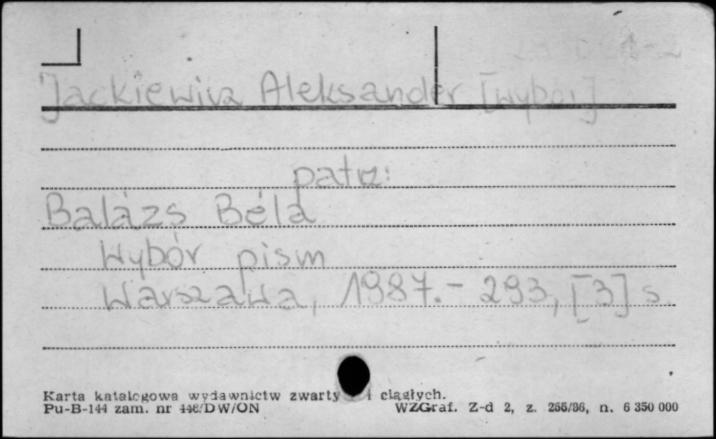 Jackiewicz Aleksander [wybór]
patrz:
Balázs Béla
Wybór pism
Warszawa, 1987. - 293, [3] s.
Karta katalogowa wydawnictw zwarty i ciągłych.
Pu-B-144 zam. nr 446/DW/ON WZGraf. Z-d 2, z. 266/86, n. 6 350 000